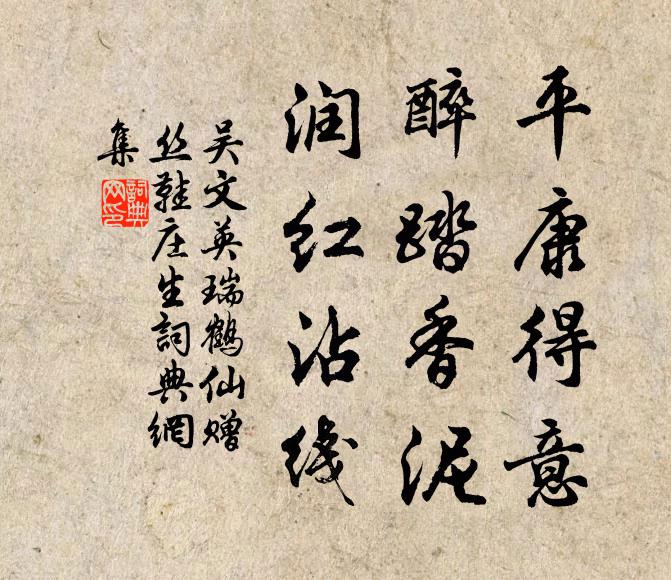 平康得意
醉踏香泥
润红沾线
吴文英瑞鹤仙赠
丝鞋庄生詞典網
集
詞典網印